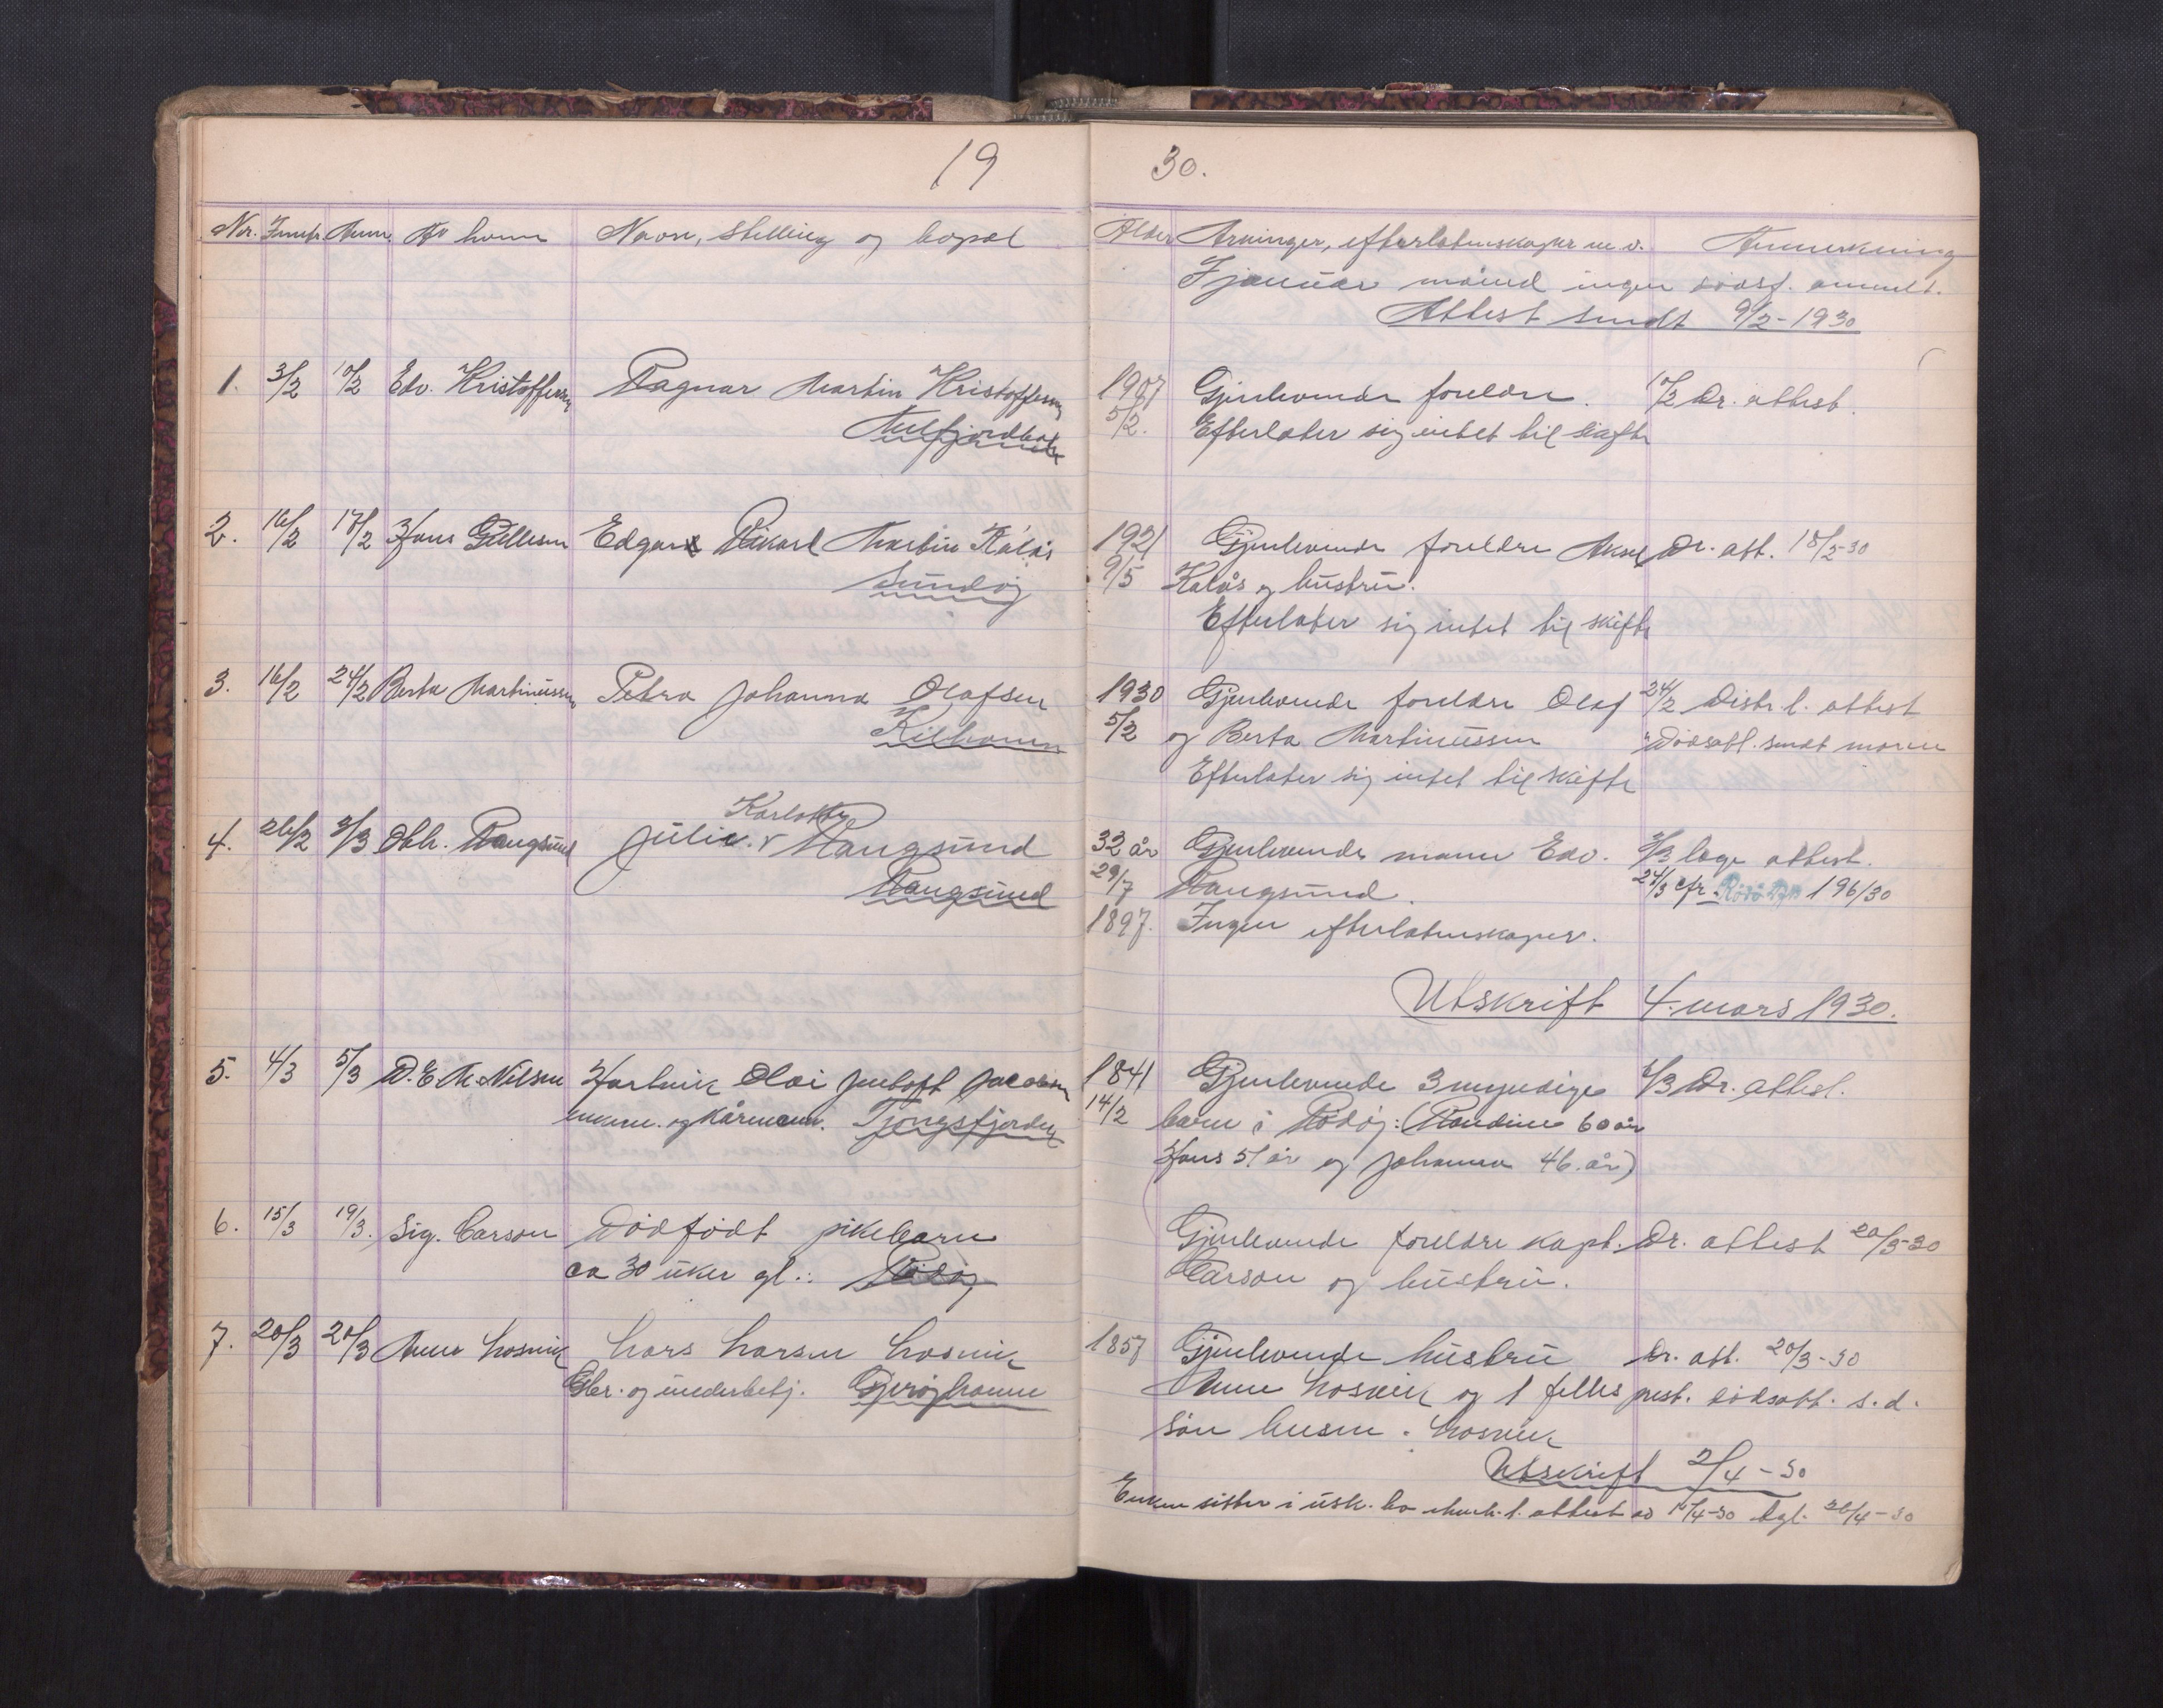 19
Nr. Inntr. Anm. Av hvem Navn, stilling og bopel
1. 3/2 10/2 Edv. Kristoffersen Ragnar Martin Kristoffersen
2. 16/2 17/2 Hans Gullesen Edgar Rikard Martin Kalås
Sundøy
3. 16/2 24/2 Berta Martinussen Petra Johanna Olafsen
Kilhamn
Karlotta
4. 26/2 3/3 Rangsund Julie Rangsund
Rangsund
5. 4/3 5/3 D. E. M. Nilsen Hartvik Olai Jentoft Jacobsen
enkem. og kårmann. Tjongsfjorden
6. 15/3 19/3. Sig. Carson Dødfødt pikebarn
ca 30 uker gl.: Rødøy
7. 20/3 20/3 Anna Losvik Lars Larsen Losvik
Gbr. og understøttj. Gjerøyhavn
30.
Alder Arvinger, efterlatenskaper m.v. Anmerkning
I januar måned ingen dødsf. anmeldt.
Attest sendt 9/2-1930
1907 Gjenlevende foreldre. 10/2 Dr. attest.
5/2. Efterlater sig intet til skifte
1921 Gjenlevende foreldre Aksel Dr. att. 18/2-30
9/5 Kalås og hustru.
Efterlater sig intet til skifte
1930 Gjenlevende foreldre Olaf 24/2 Distr.l. attest
5/2 og Berta Martinussen " Dødsatt. sendt moren
Efterlater sig intet til skifte
32 år Gjenlevende mann Edv. 3/3 læge attest.
29/7 Rangsund. 24/3 cfr. Rødø 196/30
1897. Ingen efterlatenskaper.
Utskrift 4. mars 1930.
1841 Gjenlevende 3 myndige 6/3 Dr. attest.
14/2 barn i Rødøy: (Randine 60 år
Hans 51 år og Johanna 46 år)
Gjenlevende foreldre kapt. Dr. attest 20/3-30
Carson og hustru.
1857 Gjenlevende hustru Dr. att. 20/3-30
Anna Losvik og 1 felles prest. dødsatt. s.d.
søn Losvik
Utskrift 2/4-30
Enken sitter i usk. bo 26/4-30